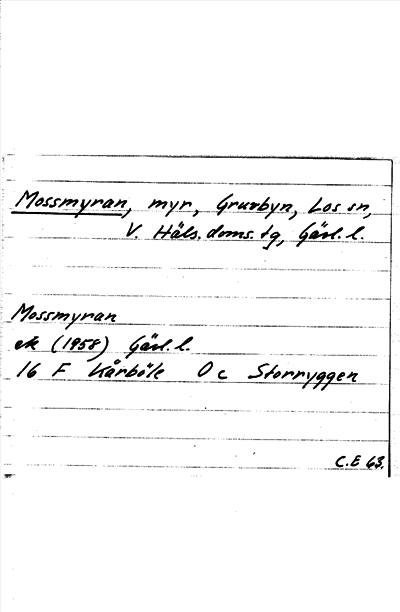 Mossmyran, myr, Gruvbyn, Los sn,
V. Häls. doms. tg, Gävl. l.
Mossmyran
ek (1958) Gävl. l.
16 F Kårböle 0 c Storryggen
C.E 63.